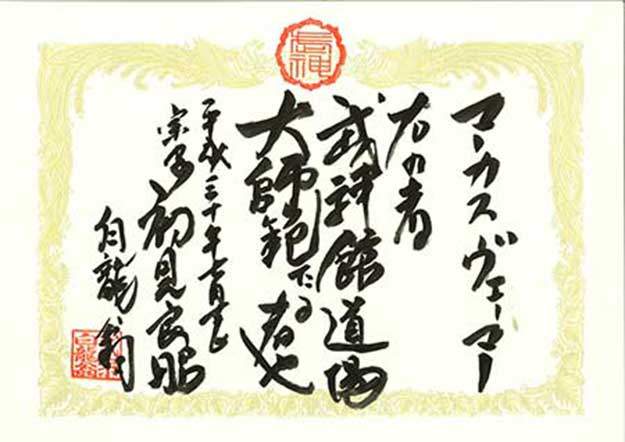 マーカスヴェーマー
右の者
武神館道場
大師範たる者也
平成三十年
宗家 初見良昭
白龍翁